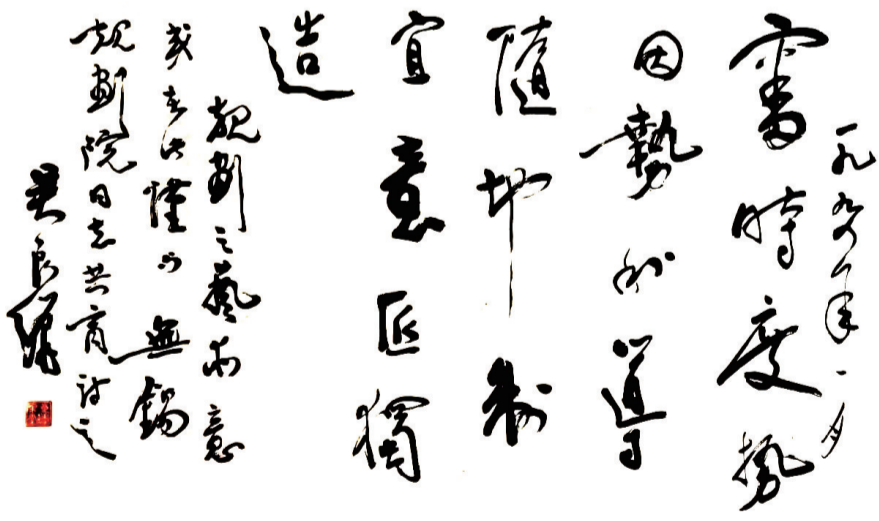 一九九年一月
審時度勢
因勢利導
隨地制
宜意匠獨
造
規劃之藝意
或在此謹与無錫
規劃院同志共商討之
吳良鏞